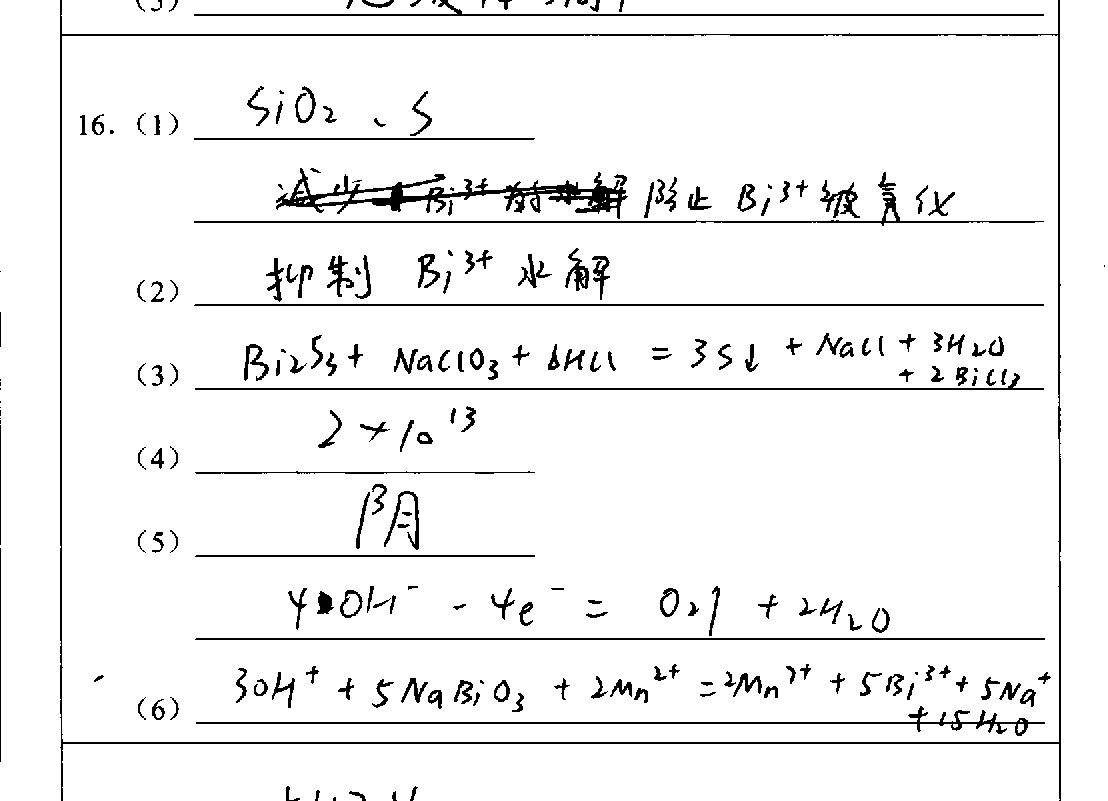 (3)
16. (1) SiO₂、S
防止 Bi³⁺ 被氧化
(2) 抑制 Bi³⁺ 水解
(3) Bi₂S₃ + NaClO₃ + 6HCl = 3S↓ + NaCl + 3H₂O
+ 2BiCl₃
(4) 2×10¹³
(5) 阴
4OH⁻ - 4e⁻ = O₂↑ + 2H₂O
(6) 30H⁺ + 5NaBiO₃ + 2Mn²⁺ = 2Mn⁷⁺ + 5Bi³⁺ + 5Na⁺
+ 15H₂O